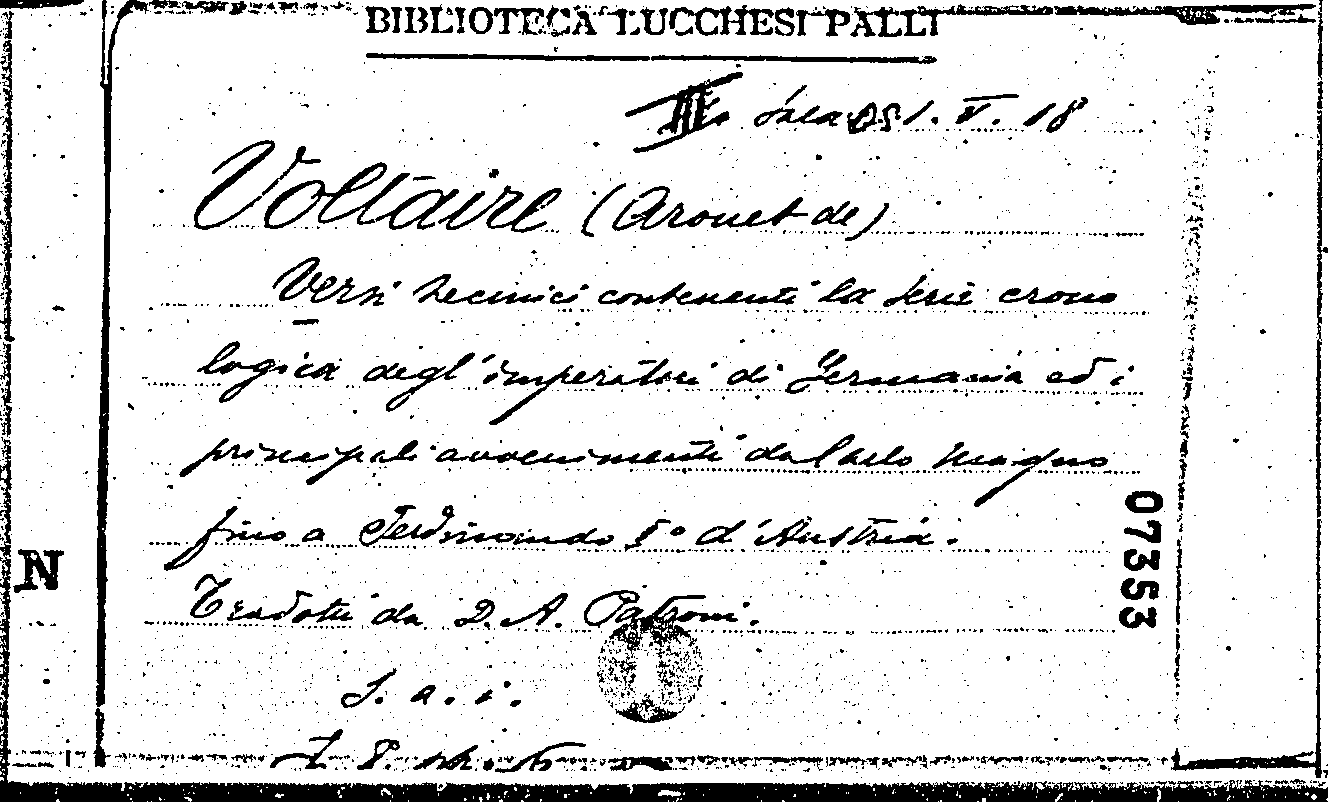 BIBLIOTECA LUCCHESI PALLI
Sala 1. V. 18
Voltaire (Arouet de)
Versi tecnici contenenti la serie crono
logica degl'imperatori di Germania ed i
principali avvenimenti da Carlo Magno
fino a Ferdinando I° d'Austria.
Tradotti da D. A. Patroni.
S. a. i.
07353
N